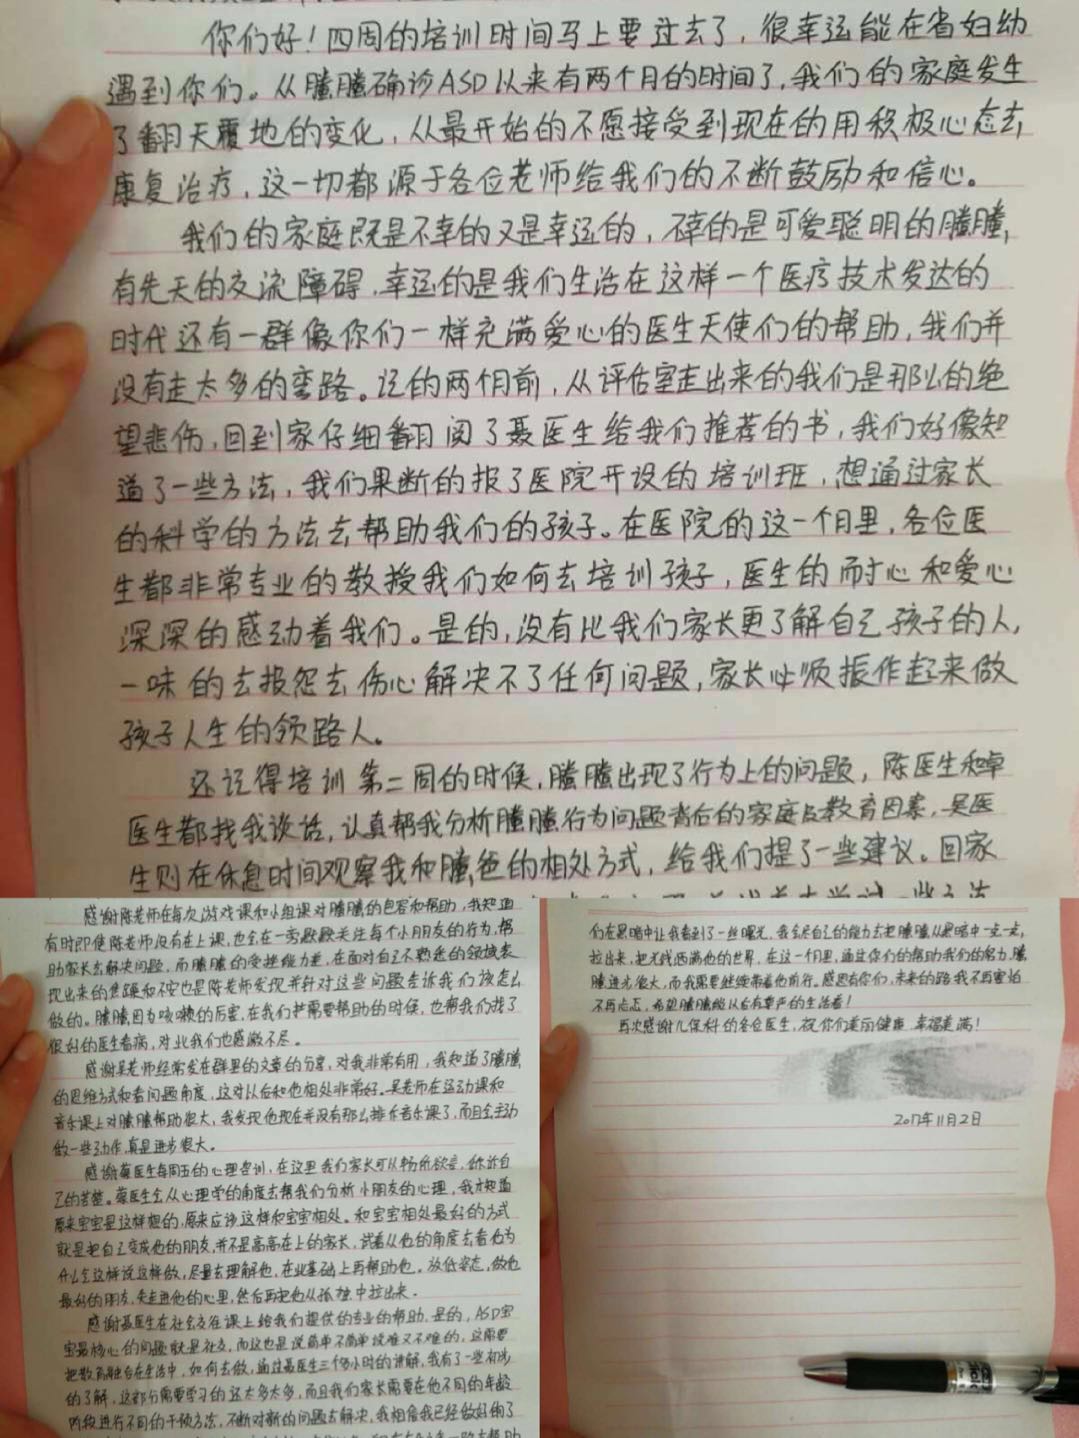 你们好！四周的培训时间马上要过去了，很幸运能在省妇幼
遇到你们。从腾腾确诊ASD以来有两个月的时间了，我们的家庭发生
了翻天覆地的变化，从最开始的不愿接受到现在的用积极心态去
康复治疗，这一切都源于各位老师给我们的不断鼓励和信心。
我们的家庭既是不幸的又是幸运的，不幸的是可爱聪明的腾腾，
有先天的交流障碍，幸运的是我们生活在这样一个医疗技术发达的
时代还有一群像你们一样充满爱心的医生天使们的帮助，我们并
没有走太多的弯路。记的两个月前，从评估室走出来的我们是那么的绝
望悲伤，回到家仔细翻阅了聂医生给我们推荐的书，我们好像知
道了一些方法，我们果断的报了医院开设的培训班，想通过家长
的科学的方法去帮助我们的孩子。在医院的这一个月里，各位医
生都非常专业的教授我们如何去培训孩子，医生的耐心和爱心
深深的感动着我们。是的，没有比我们家长更了解自己孩子的人，
一味的去报怨去伤心解决不了任何问题，家长必须振作起来做
孩子人生的领路人。
还记得培训第二周的时候，腾腾出现了行为上的问题，陈医生和卓
医生都找我谈话，认真帮我分析腾腾行为问题背后的家庭及教育因素，吴医
生则在休息时间观察我和腾爸的相处方式，给我们提了一些建议。回家
感谢陈老师在每次游戏课和小组课对腾腾的包容和帮助，我知道
有时即使陈老师没有在上课，也会在一旁默默关注每个小朋友的行为，帮
助家长去解决问题，而腾腾的受挫能力差，在面对自己不熟悉的领域表
现出来的焦躁和不安也是陈老师发现并针对这些问题告诉我们该怎么
做的。腾腾因为咳嗽的厉害，在我们挺需要帮助的时候，也帮我们找了
很好的医生看病，对此我们也感激不尽。
感谢吴老师经常发在群里的文章的分享，对我非常有用，我知道了腾腾
的思维方式和看问题角度，这对以后和他相处非常好。吴老师在运动课和
音乐课上对腾腾帮助很大，我发现他现在并没有那么排斥音乐课了，而且会主动
做一些动作，真是进步很大。
感谢蔡医生每周五的心理培训，在这里我们家长可以畅所欲言，倾诉自
己的苦楚。蔡医生会从心理学的角度去帮我们分析小朋友的心理，我才知道
原来宝宝是这样想的，原来应该这样和宝宝相处。和宝宝相处最好的方式
就是把自己变成他的朋友，并不是高高在上的家长，试着从他的角度去看他为
什么会这样说这样做，尽量去理解他，在此基础上再帮助他。放低姿态，做他
最好的朋友，先走进他的心里，然后再把他从孤独中拉出来。
感谢聂医生在社会交往课上给我们提供的专业的帮助，是的，ASD宝
宝最核心的问题就是社交，而这也是说简单不简单说难又不难的，这需要
把教育融合在生活中，如何去做，通过聂医生三个多小时的讲解，我有了一些初步
的了解，这部分需要学习的还太多太多，而且我们家长需要在他不同的年龄
阶段进行不同的干预方法，不断对新的问题去解决，我相信我已经做好的了
们在黑暗中让我看到了一丝曙光，我会尽自己的能力去把腾腾从黑暗中一点一点
拉出来，把光线洒满他的世界，在这一个月里，通过你们的帮助我们的努力，腾
腾进步很大，而我需要继续带着他前行。感恩有你们，未来的路我不再害怕
不再忐忑，希望腾腾能从容有尊严的生活着！
再次感谢儿保科的各位医生，祝你们美丽健康、幸福美满！
2017年11月2日